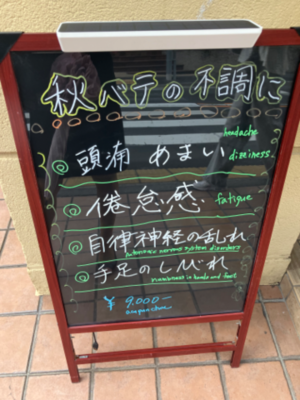 秋バテの不調に
headache
頭痛 めまい dizziness
倦怠感 fatigue
自律神経の乱れ
autonomic nervous system disorders
手足のしびれ
numbness in hands and feet
¥ 9,000-
acupuncture